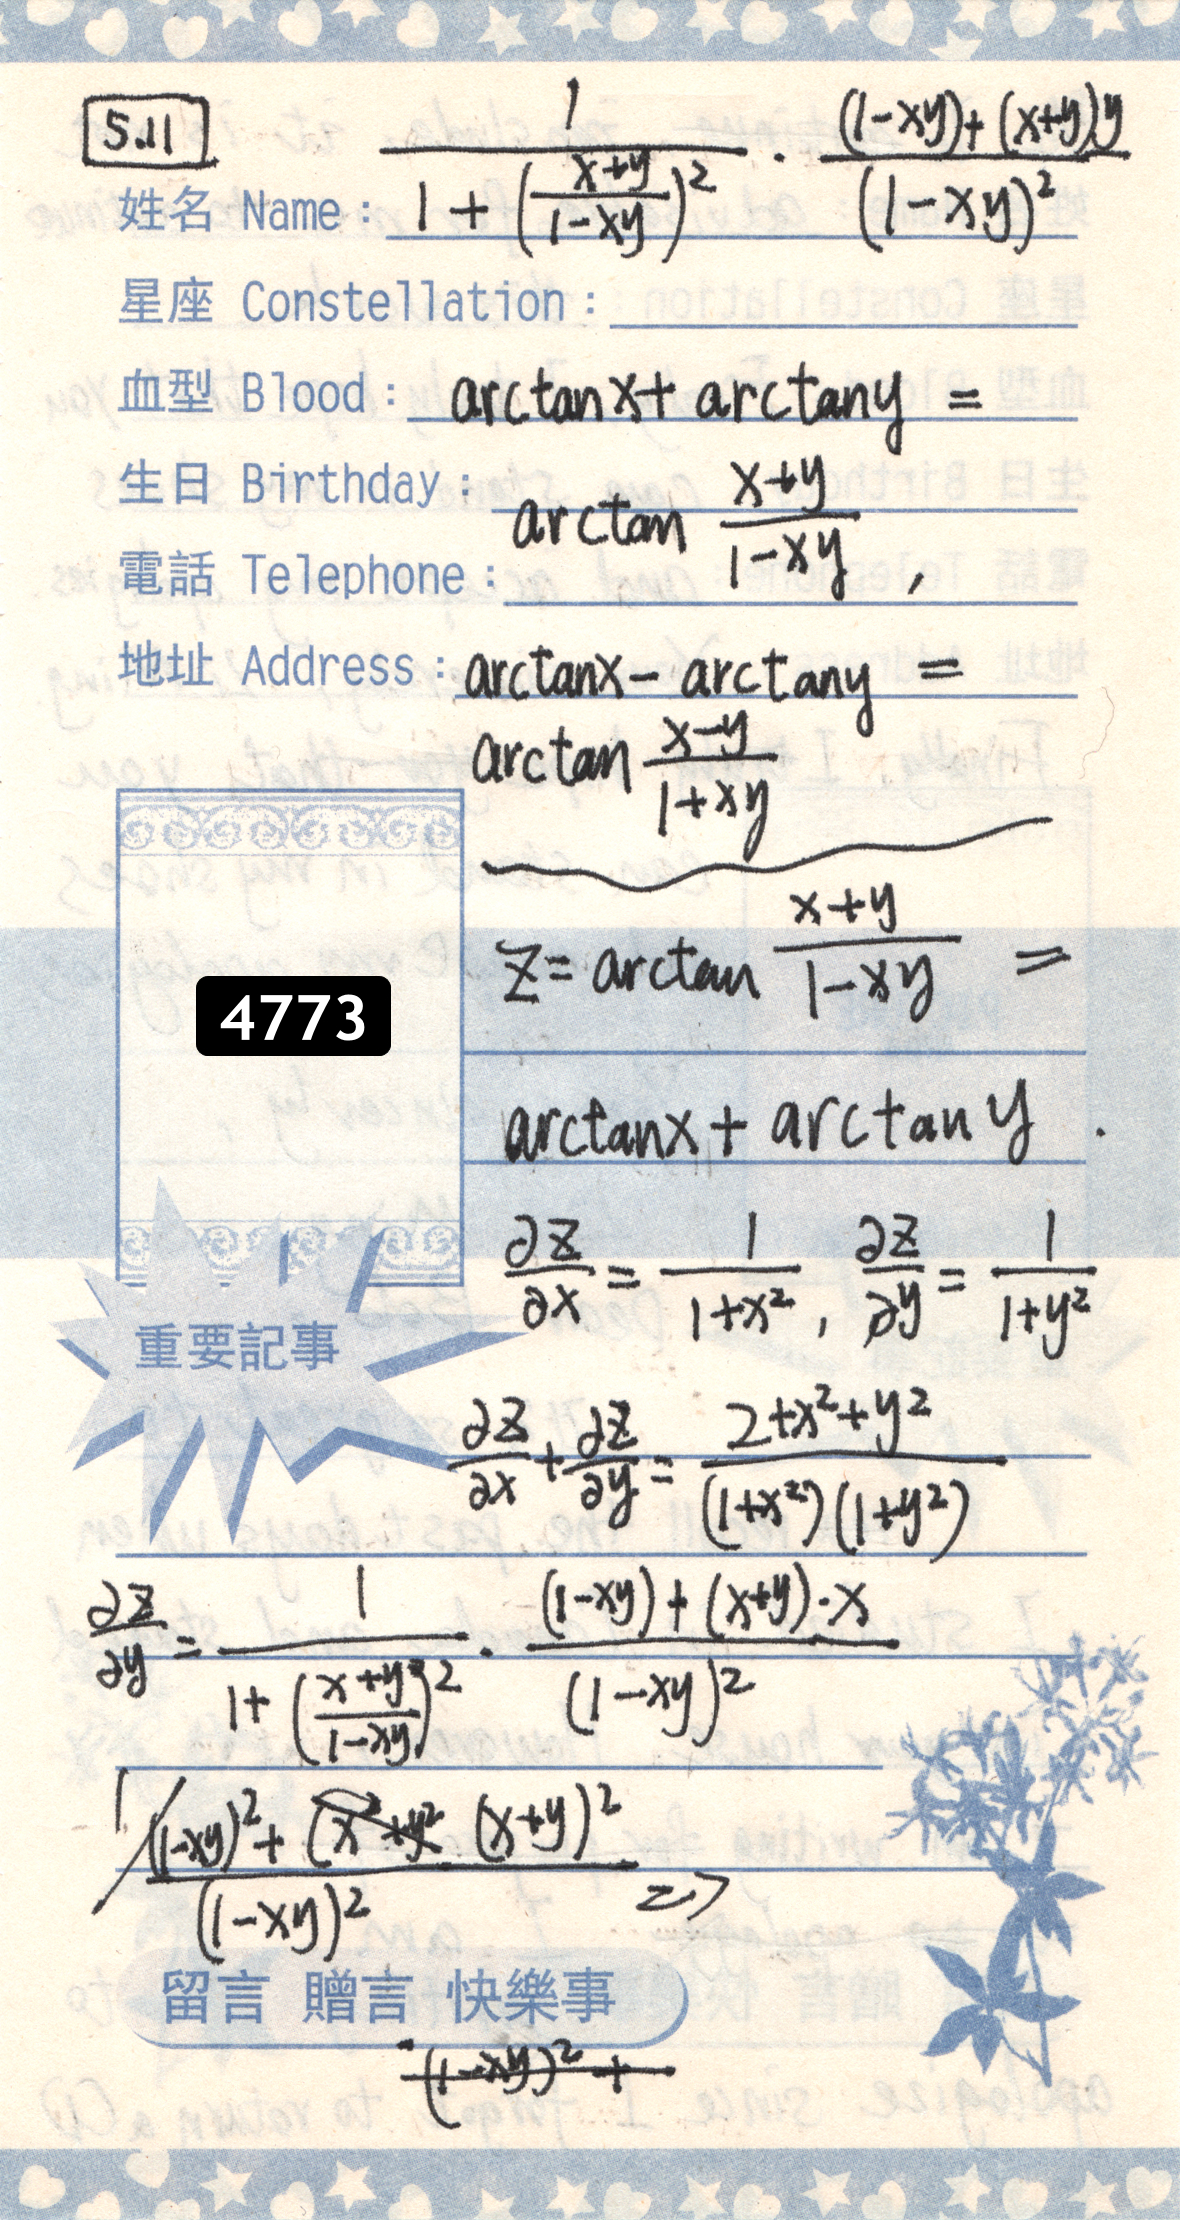 5.11
1 / (1 + ((x+y)/(1-xy))²) · ((1-xy)+(x+y)y) / (1-xy)²
姓名 Name:
星座 Constellation:
血型 Blood: arctanx + arctany =
生日 Birthday:
arctan (x+y)/(1-xy) ,
電話 Telephone:
地址 Address: arctanx - arctany =
arctan (x-y)/(1+xy)
z = arctan (x+y)/(1-xy) =
4773
arctanx + arctan y .
∂z/∂x = 1/(1+x²) , ∂z/∂y = 1/(1+y²)
重要記事
∂z/∂x + ∂z/∂y = (2+x²+y²) / ((1+x²)(1+y²))
∂z/∂y = 1 / (1 + ((x+y)/(1-xy))²) · ((1-xy)+(x+y)·x) / (1-xy)²
1 / ((1-xy)² + (x²+y² (x+y)²) / (1-xy)² =>
留言 贈言 快樂事
(1-xy)² +